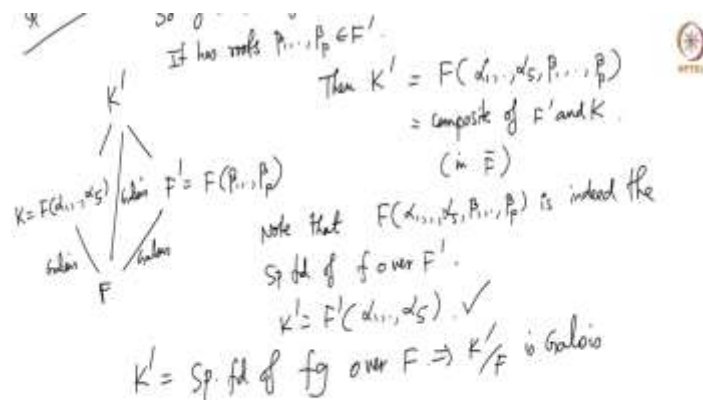 It has roots β₁,...,βₚ ∈ F'.
Then K' = F(α₁,...,α₅, β₁,...,βₚ)
= composite of F' and K.
(in F̄)
K'
K = F(α₁,...,α₅) Galois F' = F(β₁,...,βₚ)
Galois Galois
F
Note that F(α₁,...,α₅, β₁,...,βₚ) is indeed the
Sp. fd of f over F'.
K' = F'(α₁,...,α₅). ✓
K' = Sp. fd of fg over F ⇒ K'/F is Galois